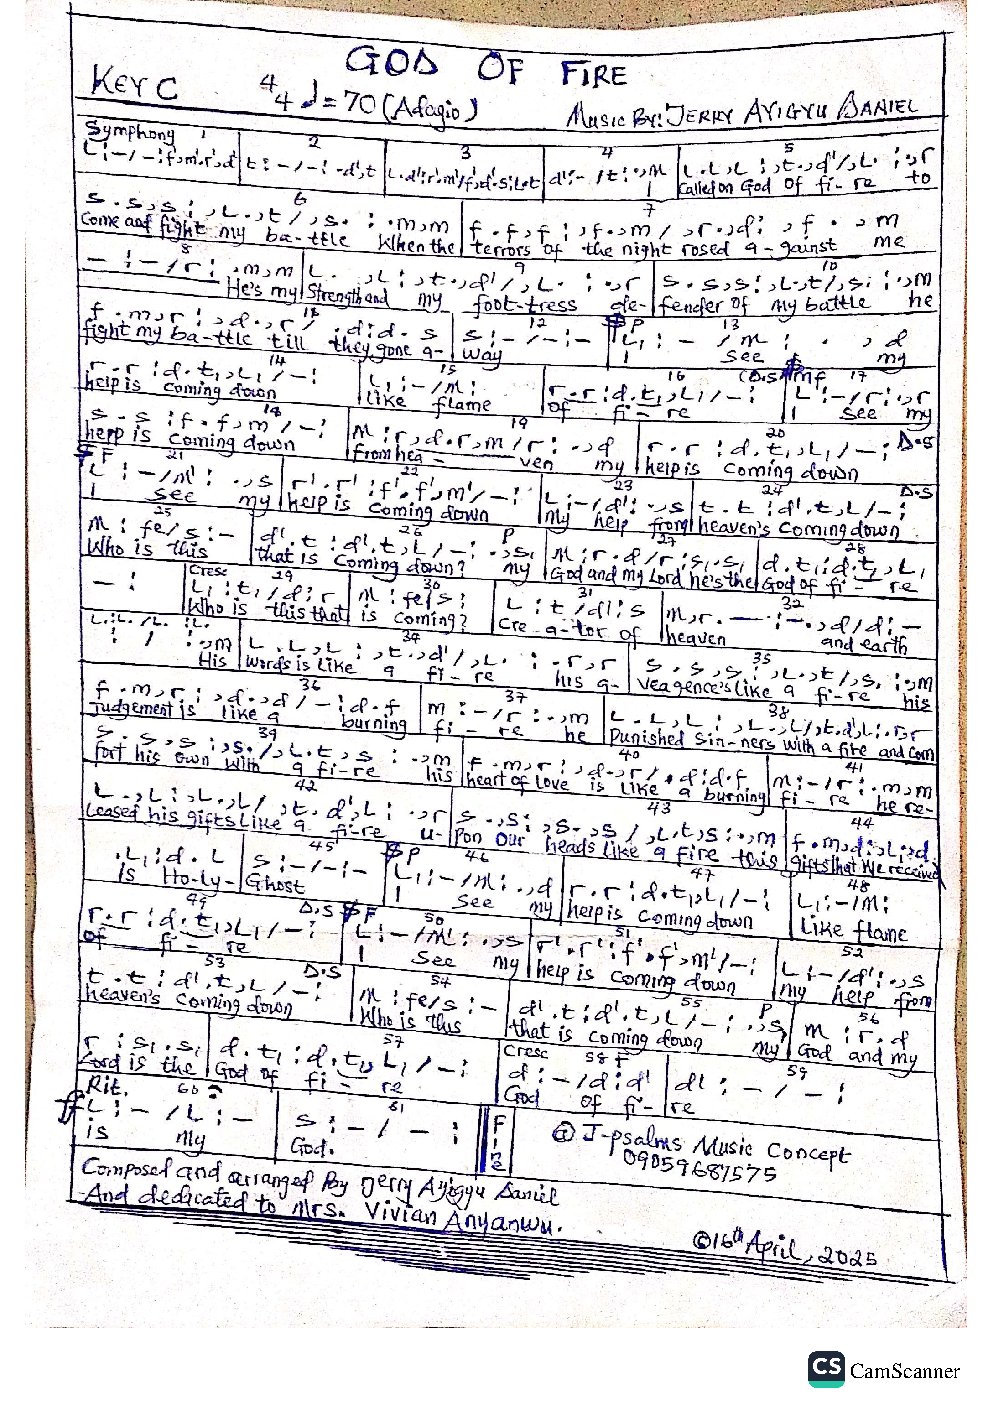 GOD OF FIRE
KEY C 4/4 ♩=70 (Adagio) MUSIC BY: JERRY AYIGYU DANIEL
Symphony 1 2 3 4 5
L : - / - : f.m'.r'.d' | t : - / - : -d',t | L.d':r'.m'/f'.d'.s:L.t | d' : - / t : .,M | L . L , L : , t . , d' / , L . : . , r
I Called on God Of fi - re to
6 7
s . s , s : , L . , t / , s . : . m , m | f . f , f : , f . , m / , r . , d : , f . , m
Come and fight my ba - ttle When the | terrors of the night rosed a - gainst me
8 9 10
- : - / r : . m , m | L . , L : , t . , d' / , L . : . , r | s . s , s : , L . , t / , s : . , m
He's my | Strength and my foot - tress de- | fender of my battle he
12 13
f . m , r : , d . , r / . d : d . s | s : - / - : - | P L₁ : - / m : . , d
fight my ba - ttle till they gone a - | way | I see my
14 15 16 (D.S) mf 17
r . r : d . t₁ , L₁ / - : | L₁ : - / M : | r . r : d . t₁ , L₁ / - : | L : - / r : . , r
help is coming down | like flame | of fi - re | I see my
18 19 20 D.S
s . s : f . f , m / - : | M : r , d . r , m / r : . , d | r . r : d . t₁ , L₁ / - :
help is coming down | from hea - ven my | help is coming down
F 21 22 23 24 D.S
L : - / m' : . , s | r' . r' : f' . f' , m' / - : | L : - / d' : . , s | t . t : d' . t , L / - :
I see my | help is coming down | my help from | heaven's coming down
25 26 P 27 28
M : fe / s : - | d' . t : d' . t , L / - : . , s₁ | M : r . d / r : s₁ . s₁ | d . t₁ : d . t₁ , L₁
Who is this | that is coming down? my | God and my Lord he's the | God of fi - re
Cresc 29 30 31 32
- : | L₁ : t₁ / d : r | M : fe / s : | L : t / d' : s | M , r . - : - . , d / d : -
Who is this that | is coming? | Cre - a - tor of | heaven and earth
34 35
: / : . , m | L . L , L : , t . , d' / , L . : . r , r | s . s , s : , L . , t / , s . : . , m
His | words is like a fi - re his a- | veagence's like a fi - re his
36 37 38
f . m , r : , d . , d / - : d . f | m : - / r : . , m | L . L , L : , L . , L / , t . d' , L :
Judgement is like a burning | fi - re he | Punished Sin - ners with a fire and Com
39 40 41
s . s , s : , s . / , L . t , s : . , m | f . m , r : , d . , r / . d : d . f | m : - / r : . m , m
fort his own with a fi - re his | heart of love is like a burning | fi - re he re-
42 43 44
L . , L : , L . , L / , t . d' , L : . , r | s . , s : , s . , s / , L . t , s : . , m | f . m , d : , L₁ . , d
leased his gifts like a fi - re u- | Pon our heads like a fire this | gifts that we received
45 P 46 47 48
. L₁ : d . L | s : - / - : - | L₁ : - / M : . , d | r . r : d . t₁ , L₁ / - : | L₁ : - / M :
is Ho - ly - | Ghost | I see my | help is coming down | Like flame
49 D.S F 50 51 52
r . r : d . t₁ , L₁ / - : | L : - / m' : . , s | r' . r' : f' . f' , m' / - : | L : - / d' : . , s
of fi - re | I see my | help is coming down | my help from
53 D.S 54 55 P 56
t . t : d' . t , L / - : | M : fe / s : - | d' . t : d' . t , L / - : . , s₁ | M : r . d
heaven's coming down | Who is this | that is coming down my | God and my
57 Cresc 58 F 59
r : s₁ . s₁ | d . t₁ : d . t₁ , L₁ / - : | d : - / d : d' | d' : - / - :
Lord is the | God of fi - re | God of fi - | re
Rit. 60 61
ff L : - / L : - | s : - / - : | Fine
is my | God.
J-psalms Music Concept
09059687575
Composed and arranged By Jerry Ayigyu Daniel
And dedicated to Mrs. Vivian Anyanwu.
©16th April, 2025
CS CamScanner